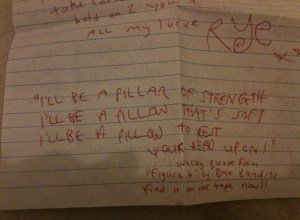 take care
hold on 2 you
ALL my lurve
RYE
xs
"I'LL BE A PILLAR OF STRENGTH
I'LL BE A PILLOW THAT'S SOFT
I'LL BE A PILLOW to REST
YOUR HEAD UPON!"
wacky quote from
"Figure 4" by BMX Bandits
find it on yor tape now!!